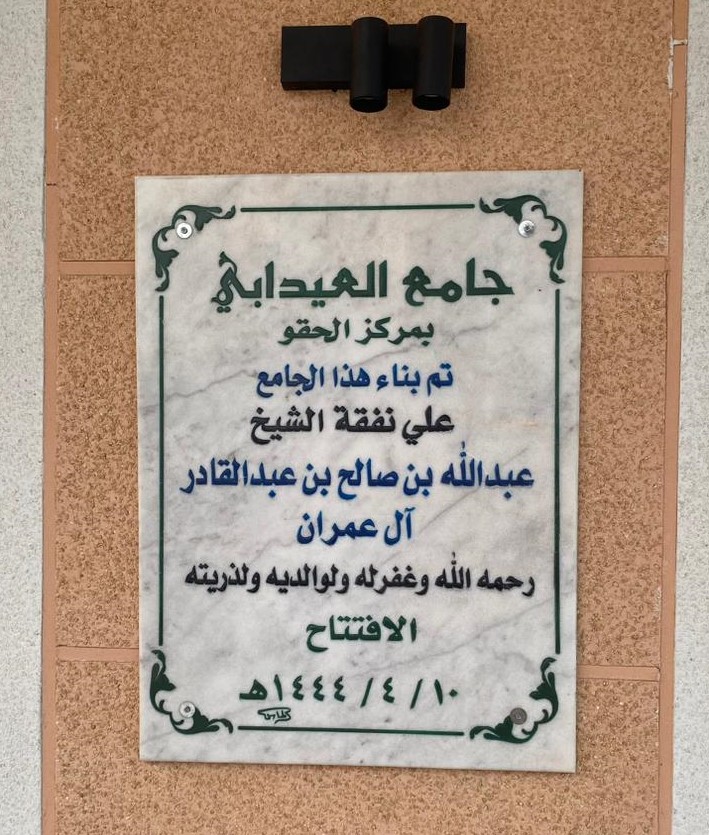 جامع العيدابي
بمركز الحقو
تم بناء هذا الجامع
علي نفقة الشيخ
عبدالله بن صالح بن عبدالقادر
آل عمران
رحمه الله وغفرله ولوالديه ولذريته
الافتتاح
١٠ / ٤ / ١٤٤٤هـ